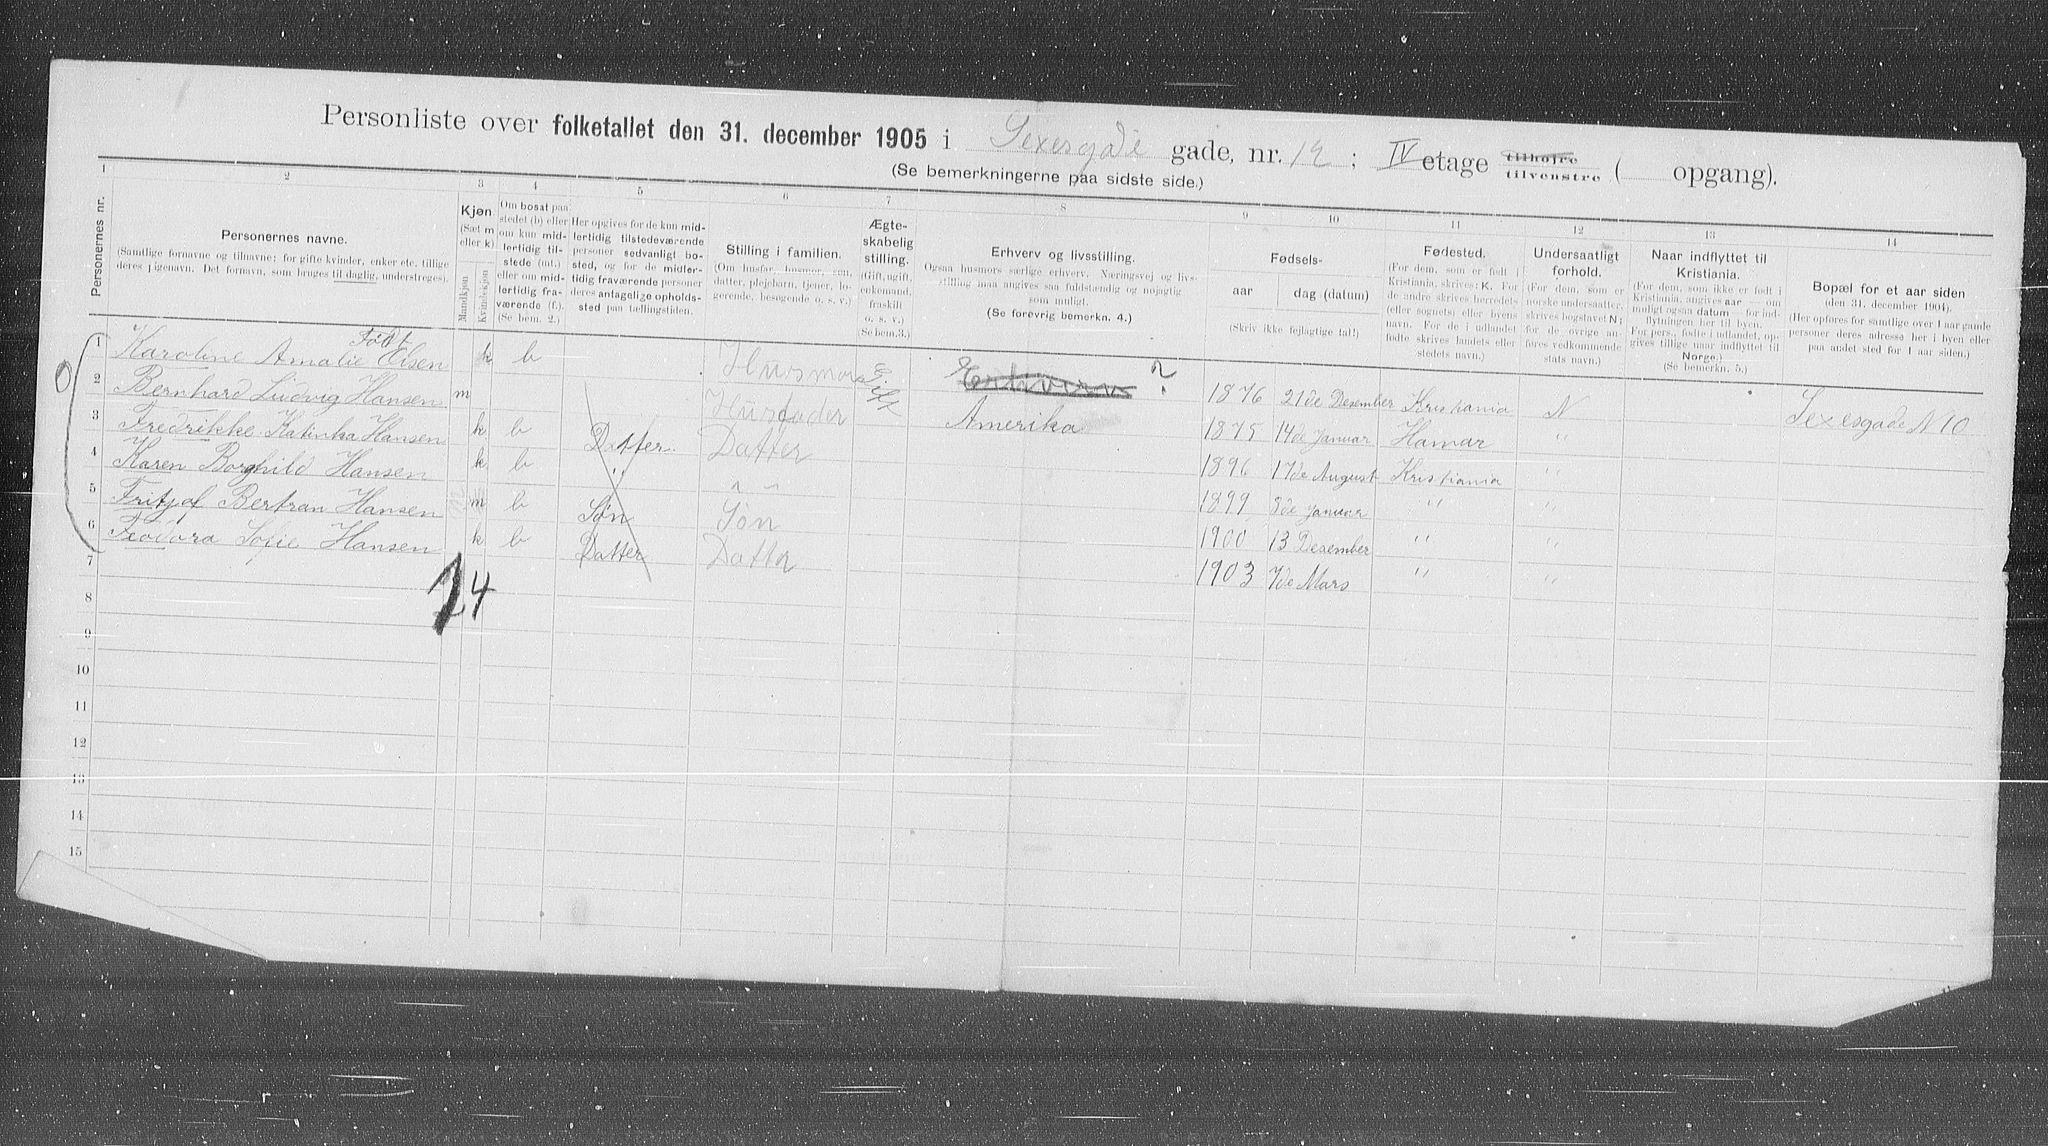 Personliste over folketallet den 31. december 1905 i Sexesgade gade, nr. 12 ; IV etage tilhøjre tilvenstre ( opgang).
(Se bemerkningerne paa sidste side.)
1 2 3 4 5 6 7 8 9 10 11 12 13 14
Personernes nr.
Personernes navne.
(Samtlige fornavne og tilnavne; for gifte kvinder, enker etc. tillige deres pigenavn. Det fornavn, som bruges til daglig, understreges).
Kjøn
(Sæt m eller k).
Mandkjøn
Kvindekjøn
Om bosat paa stedet (b) eller om kun midlertidig tilstede (mt.) eller om midlertidig fraværende (f.). (Se bem. 2.)
Her opgives for de kun midlertidig tilstedeværende personer sedvanligt bosted, og for de midlertidig fraværende personer deres antagelige opholdssted paa tællingstiden.
Stilling i familien.
(Om husfar, husmor, søn, datter, plejebarn, tjener, logerende, besøgende o. s. v.)
Ægteskabelig stilling.
(Gift, ugift, enkemand, fraskilt o. s. v.)
Se bem. 3.)
Erhverv og livsstilling.
Ogsaa husmors særlige erhverv. Næringsvej og livsstilling maa angives saa fuldstændig og nøjagtig som muligt.
(Se forøvrig bemerkn. 4.)
Fødsels-
aar
dag (datum)
(Skriv ikke fejlagtige tal!)
Fødested.
(For dem, som er født i Kristiania, skrives: K. For de andre skrives herredets (eller sognets) eller byens navn. For de i udlandet fødte skrives landets eller stedets navn.)
Undersaatligt forhold.
(For dem, som er norske undersaatter, skrives bogstavet N; for de øvrige anføres vedkommende stats navn.)
Naar indflyttet til Kristiania.
(For dem, som ikke er født i Kristiania, angives aar — om muligt ogsaa datum — for indflytningen her til byen. For pers., fødte i udlandet, opgives tillige naar indflyttet til Norge.)
(Se bemerkn. 5.)
Bopæl for et aar siden
(den 31. december 1904).
(Her opføres for samtlige over 1 aar gamle personer deres adresse her i byen eller paa andet sted for 1 aar siden.)
Født
1 Karoline Amalie Olsen k b Husmor Gift Erhverv ? 1876 21de Desember Kristiania N Sexesgade N 10
2 Bernhard Ludvig Hansen m Husfader Amerika 1875 14de Januar Hamar "
3 Fredrikke Katinka Hansen k b Datter Datter 1896 17de August Kristiania "
4 Karen Borghild Hansen k b " " " 1899 8de Januar " "
5 Fritjof Bertran Hansen m b Søn Søn 1900 13 Desember " "
6 Feodora Sofie Hansen k b Datter Datter 1903 7de Mars " "
7
8
9
10
11
12
13
14
15